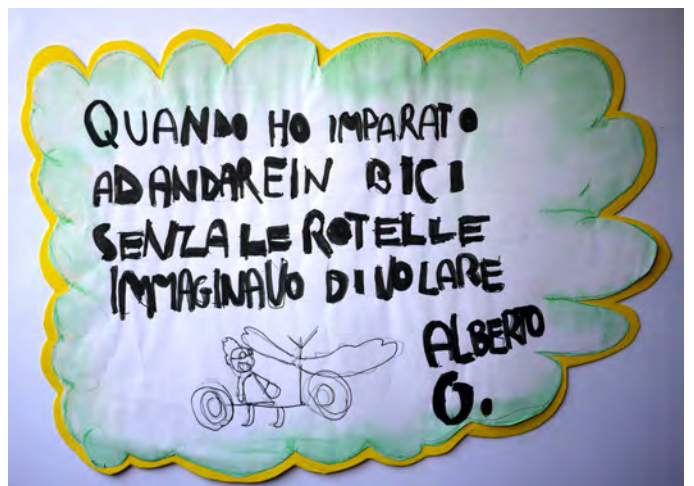 QUANDO HO IMPARATO
AD ANDARE IN BICI
SENZA LE ROTELLE
IMMAGINAVO DI VOLARE
ALBERTO
O.